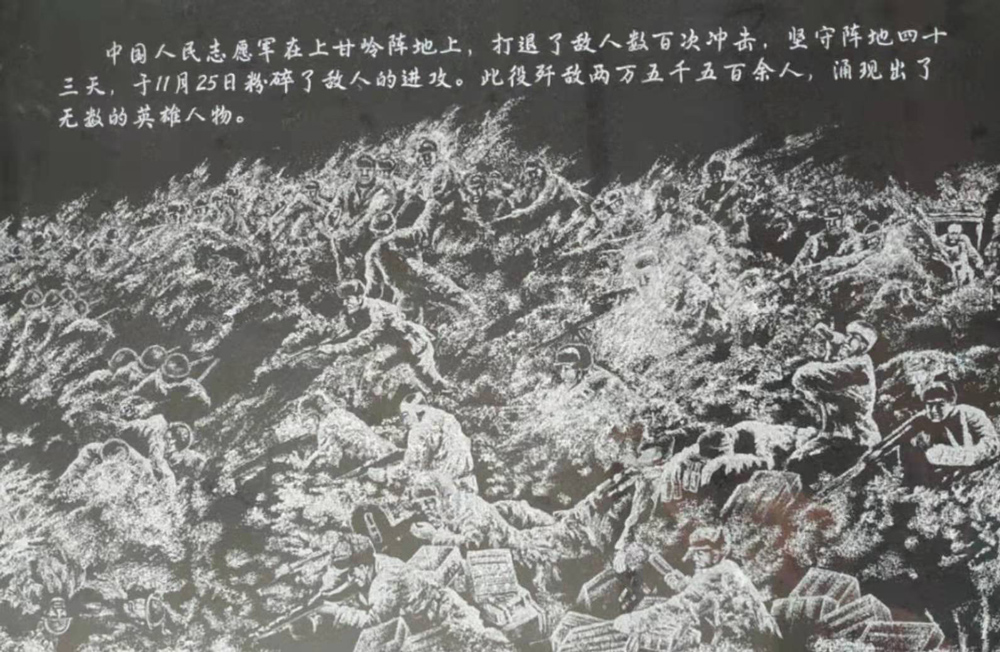 中国人民志愿军在上甘岭阵地上，打退了敌人数百次冲击，坚守阵地四十
三天，于11月25日粉碎了敌人的进攻。此役歼敌两万五千五百余人，涌现出了
无数的英雄人物。